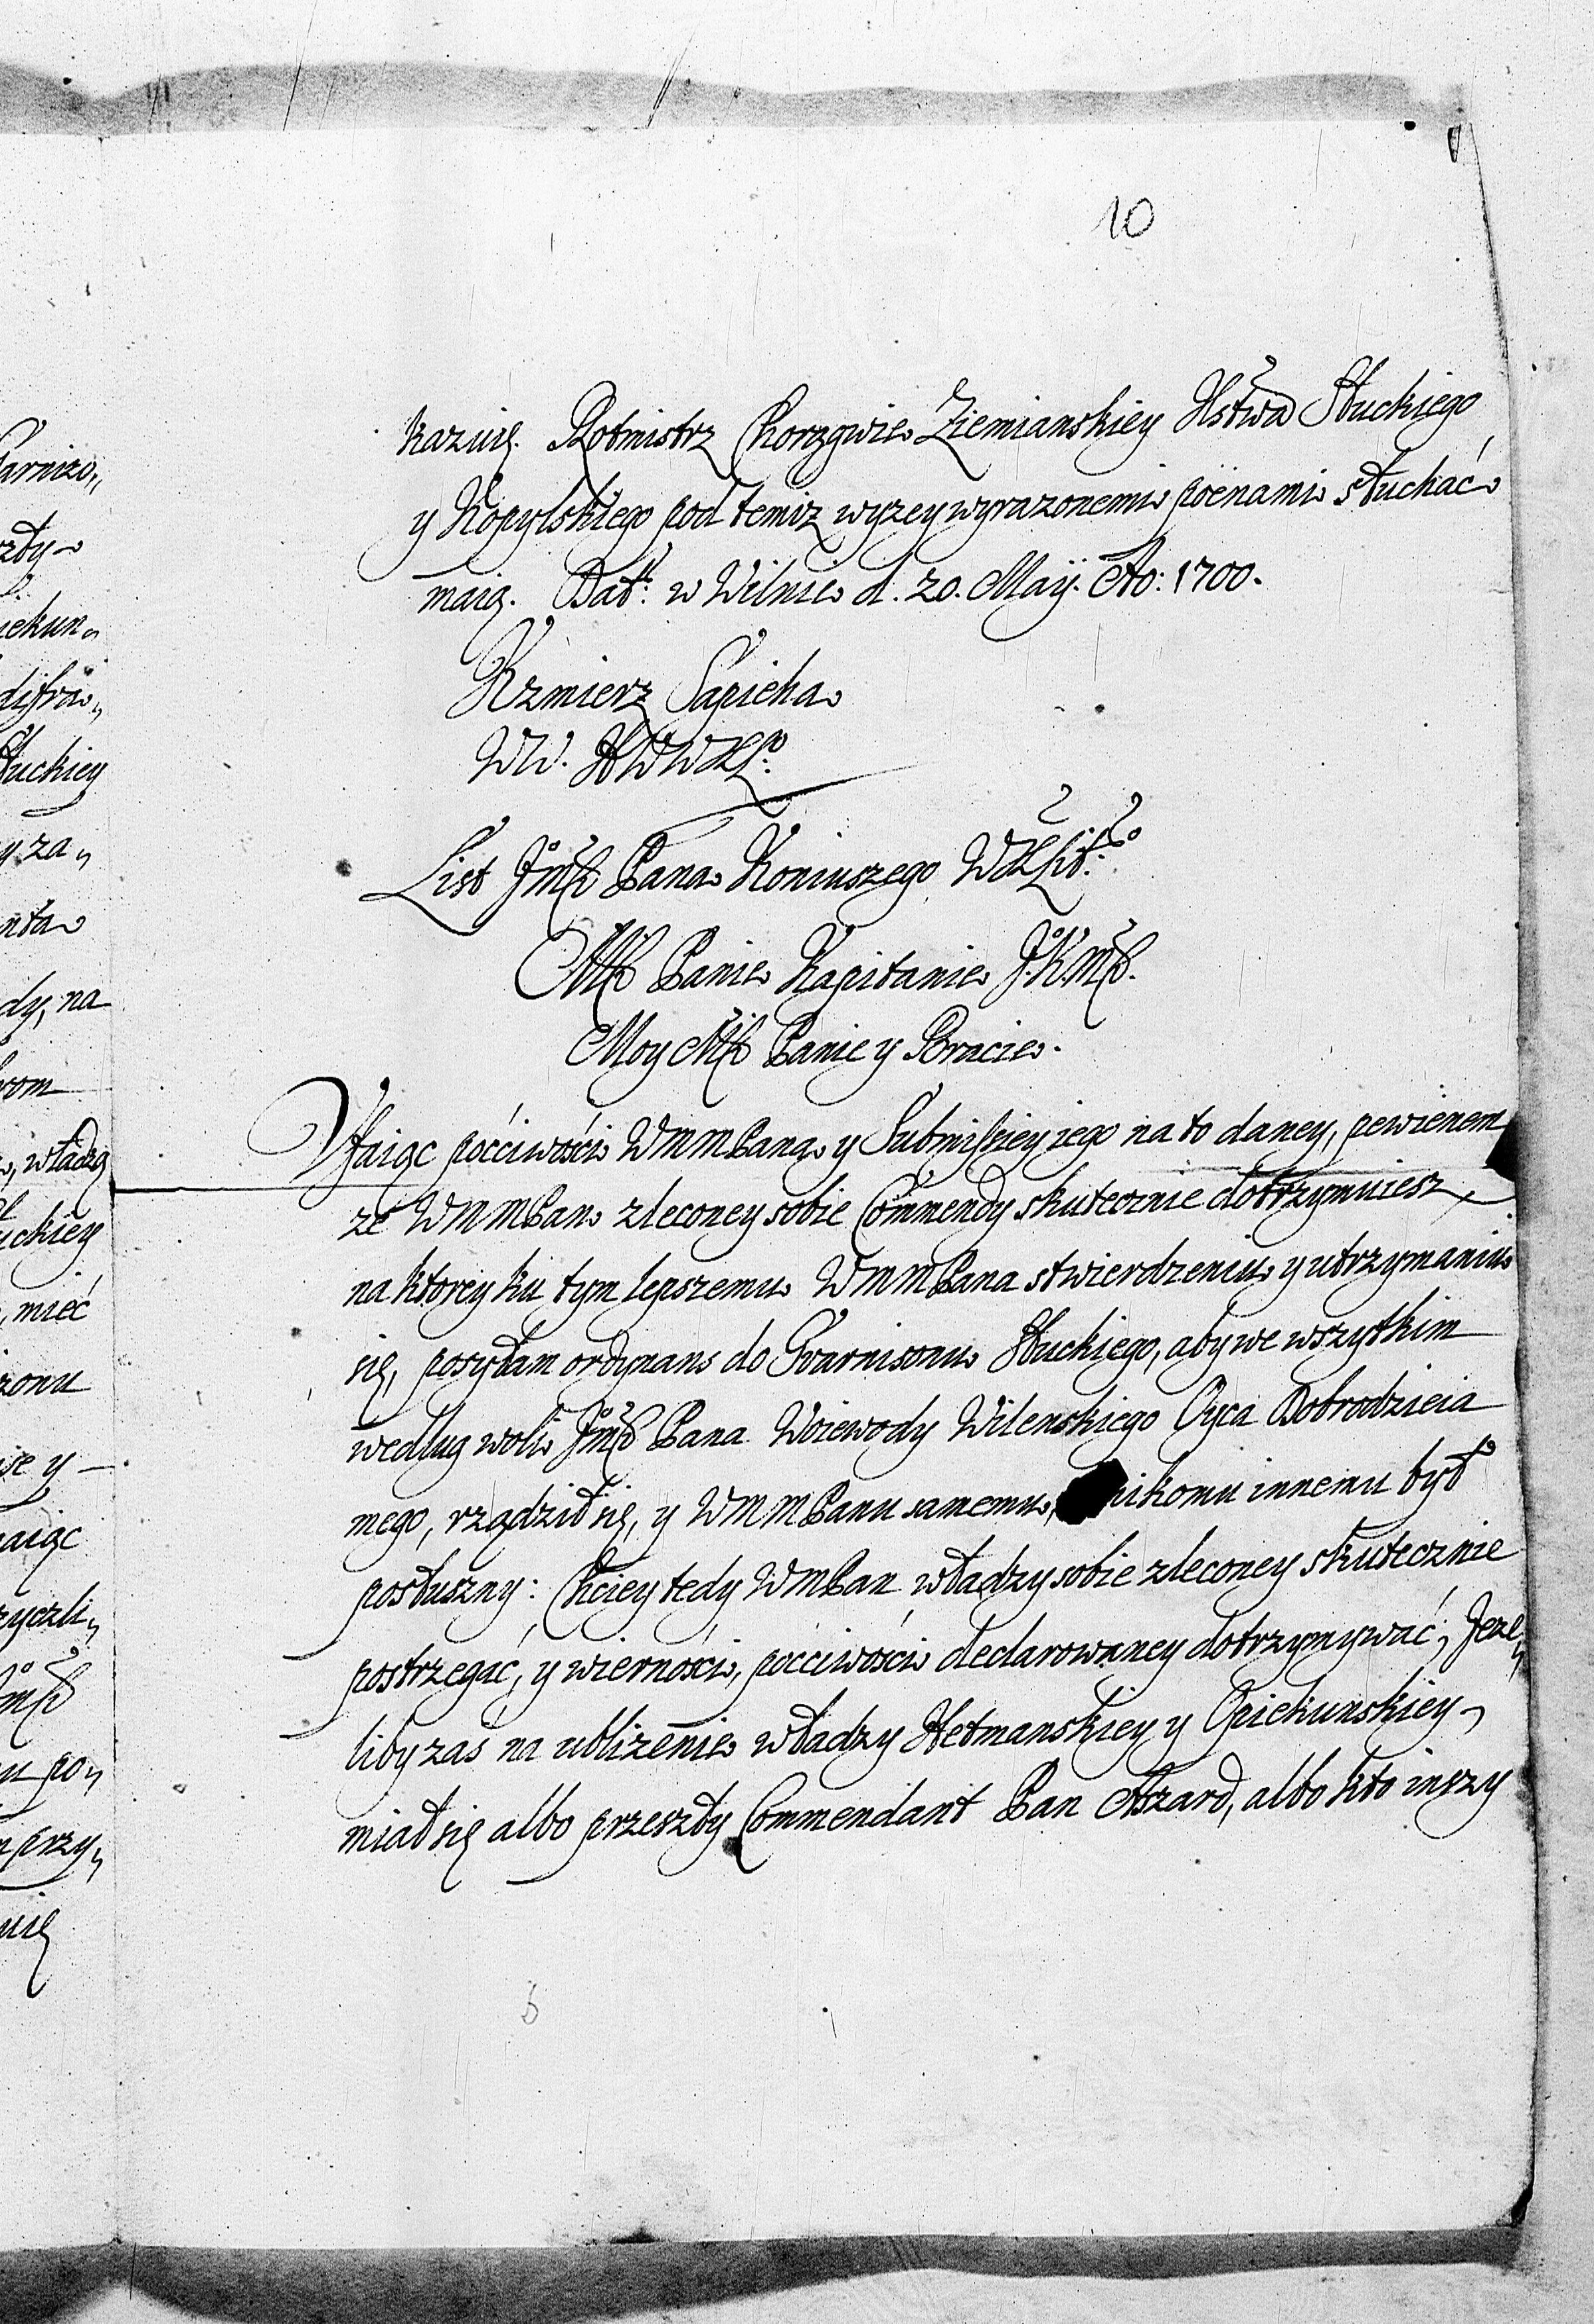 10
kazuię. Rotmistrz Chorągwie Ziemianskiey Xstwa Słuckiego
y Kopylskiego pod temiz wyzey wyrazonemi poenami słuchać
maią. Dat: w Wilnie d. 20. Maij. Ao: 1700.
Kzmierz Sapieha
WW. HWWXL:
List Jmść Pana Koniuszego WXLit:
Mść Panie Kapitanie J.K.Mść.
Moy Mść Panie y Bracie.
Vfaiąc poćciwości WMMPana y Submissiey iego na to daney, pewienem
ze WMMPan zleconey sobie Commendy skutecznie dotrzymuiesz
na ktorey ku tym lepszemu WMMPana stwierdzeniu y utrzymaniu
się, posyłam ordynans do Gvarnisonu Słuckiego, aby we wszytkim
według woli Jmść Pana Woiewody Wilenskiego Oyca Dobrodzieia
mego, rządził się, y WMMPanu samemu, nikomu innemu był
posłuszny: Chciey tedy WMPan władzy sobie zleconey skutecznie
postrzegać, y wierności, poćciwości declarowaney dotrzymywać; Jeze„
liby zaś na ublizenie władzy Hetmanskiey y Opiekunskiey
miał się albo przeszły Commendant Pan Aszard, albo kto inszy